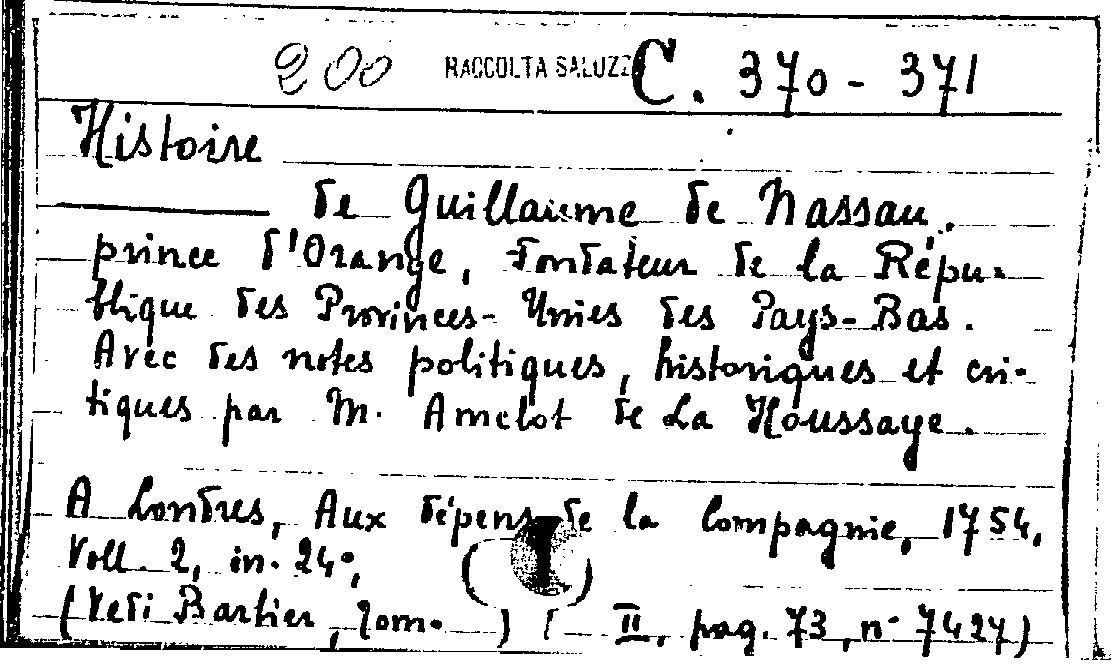 200 RACCOLTA SALUZZ C. 370 - 371
Histoire
de Guillaume de Nassau,
prince d'Orange, Fondateur de la Répu-
blique des Provinces-Unies des Pays-Bas.
Avec des notes politiques, historiques et cri-
tiques par M. Amelot de La Houssaye.
A Londres, Aux dépens de la Compagnie, 1754,
Voll. 2, in-24°,
(Vedi Barbier, Tom. ) ( II, pag. 73, n° 7424)